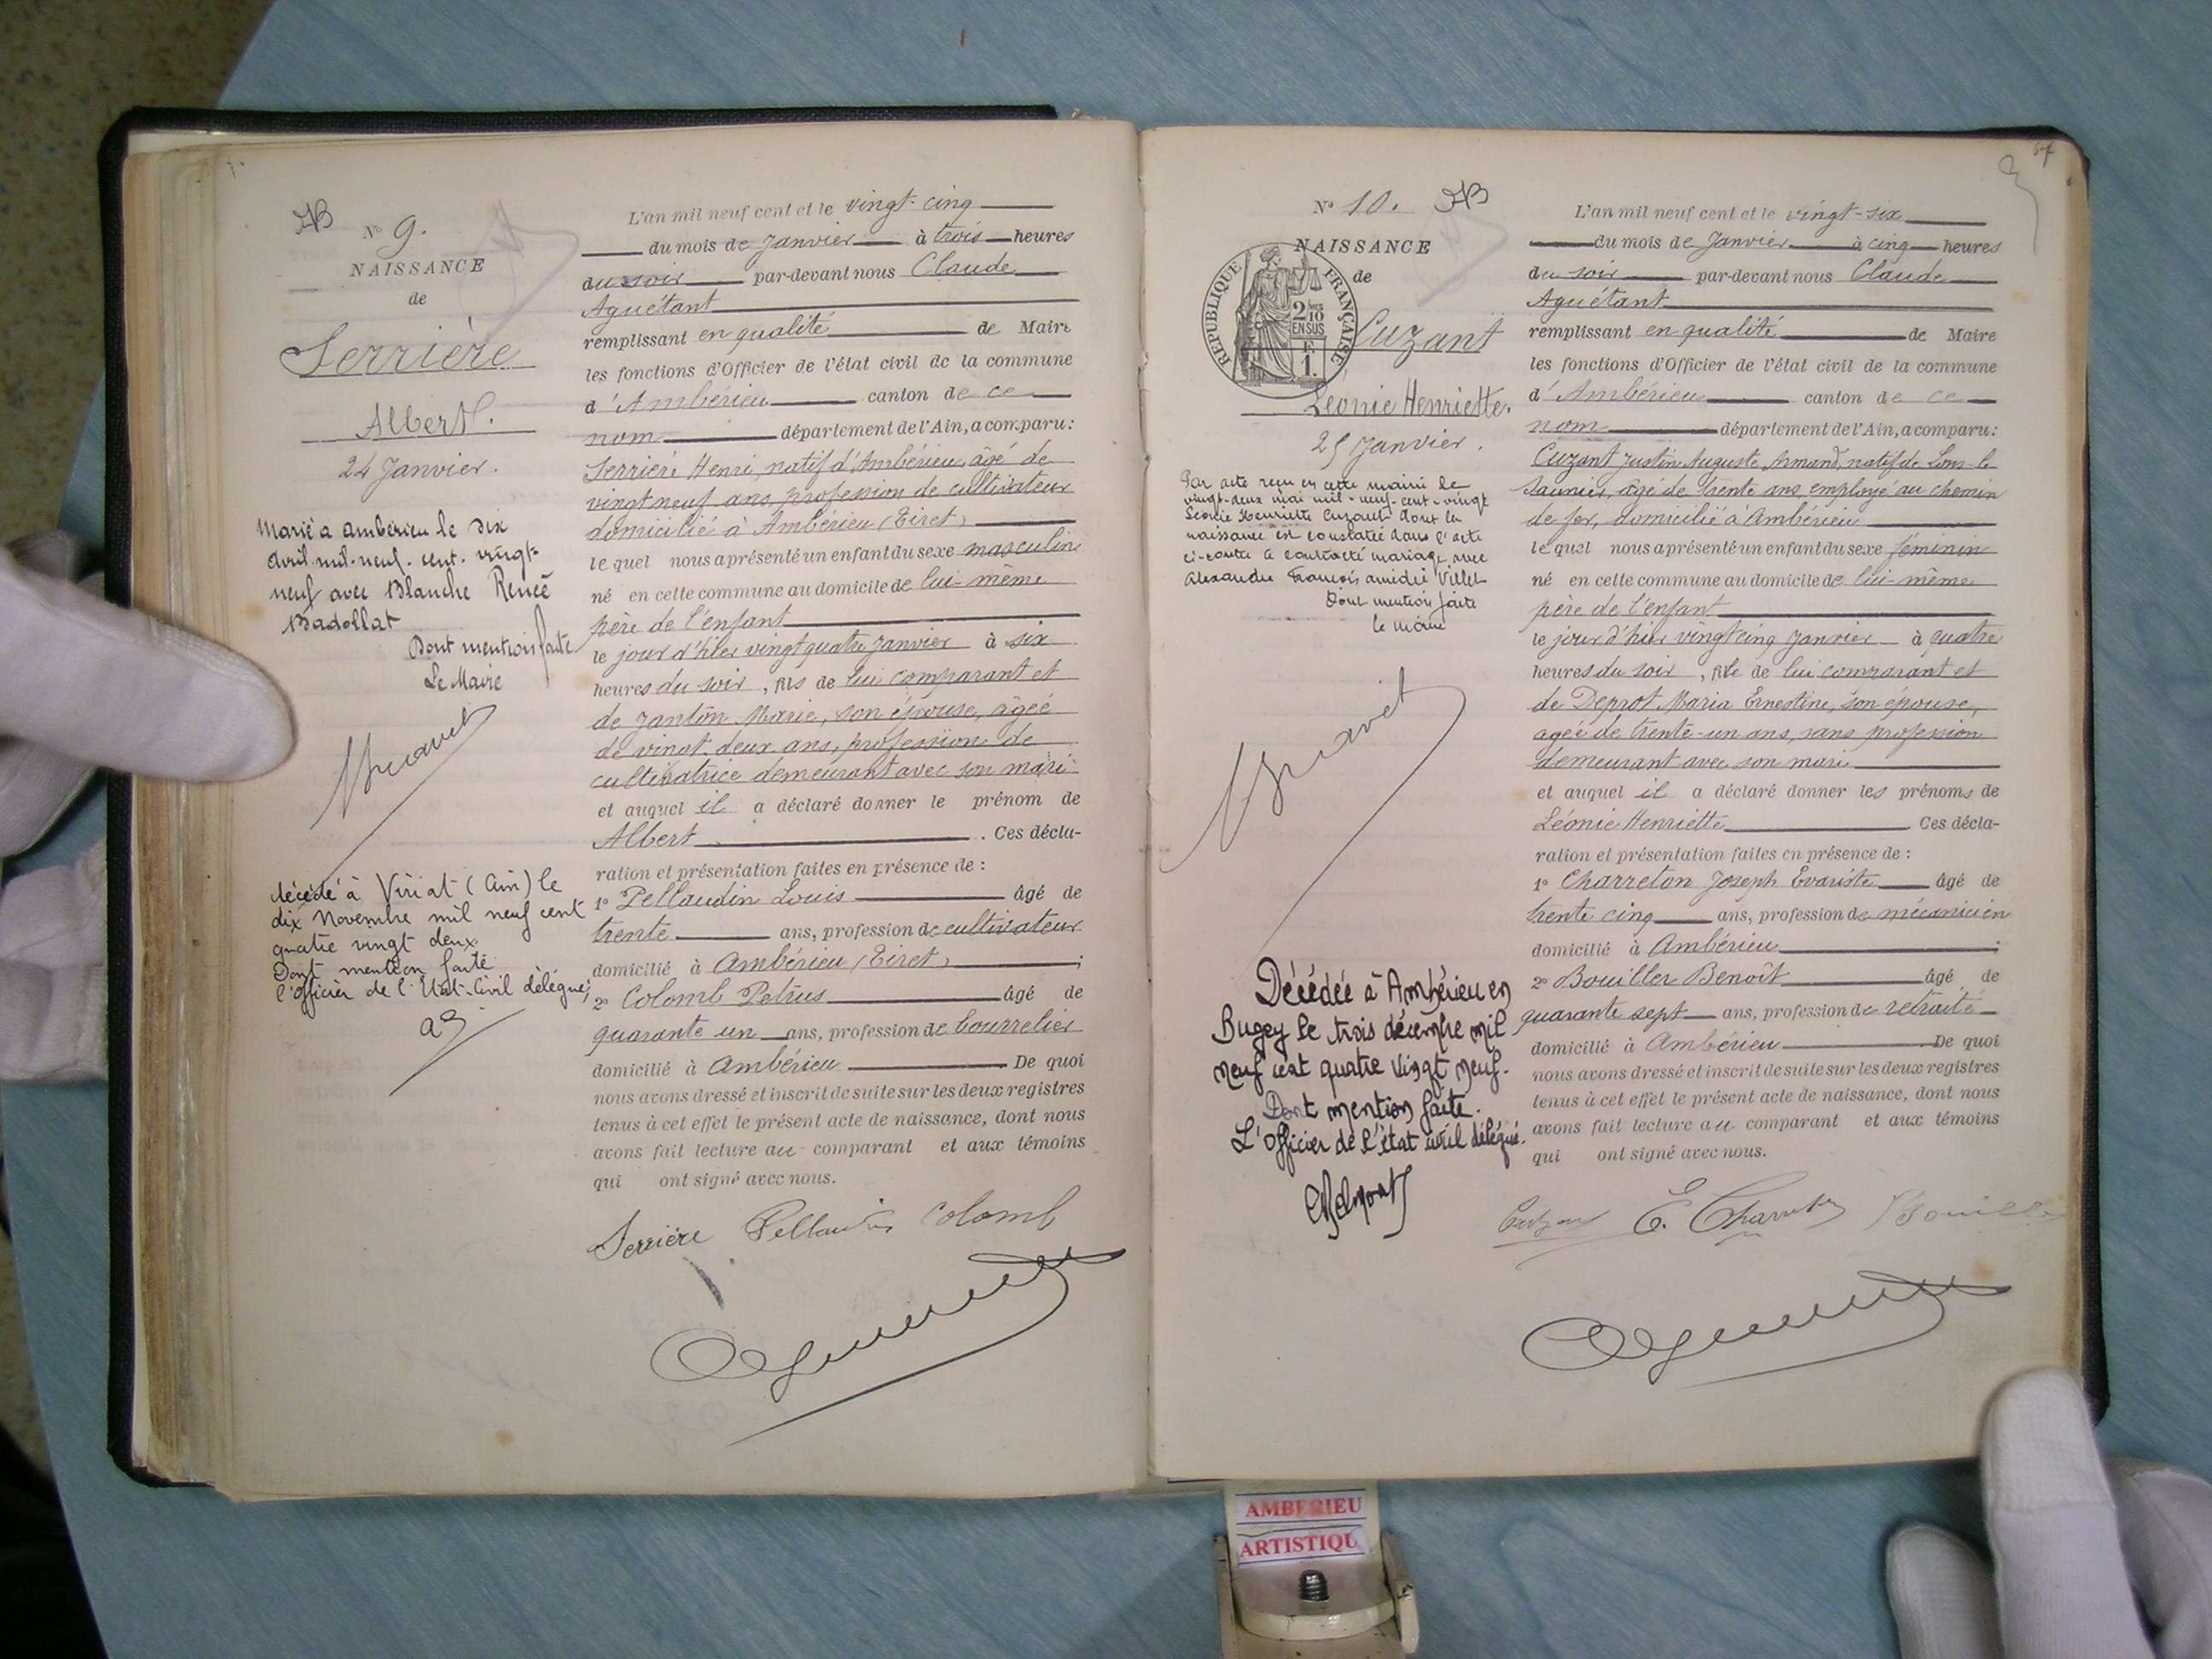 N° 9.
NAISSANCE
de
Serrière
Albert.
24 Janvier.
Marié à Ambérieu le dix
avril mil-neuf-cent-vingt-
neuf avec Blanche Renée
Badollat
Dont mention faite
Le Maire
décédé à Viriat (Ain) le
dix Novembre mil neuf cent
quatre vingt deux.
Dont mention faite
l'officier de l'Etat-Civil délégué,
L'an mil neuf cent et le vingt-cinq
du mois de Janvier à trois heures
du soir par-devant nous Claude
Aguétant
remplissant en qualité de Maire
les fonctions d'Officier de l'état civil de la commune
d'Ambérieu canton de ce
nom département de l'Ain, a comparu:
Serrière Henri, natif d'Ambérieu, âgé de
vingt neuf ans, profession de cultivateur
domicilié à Ambérieu (Tiret)
lequel nous a présenté un enfant du sexe masculin
né en cette commune au domicile de lui-même
père de l'enfant
le jour d'hier vingt quatre Janvier à six
heures du soir, fils de lui comparant et
de Jantôn Marie, son épouse, âgée
de vingt deux ans, profession de
cultivatrice demeurant avec son mari
et auquel il a déclaré donner le prénom de
Albert. Ces décla-
ration et présentation faites en présence de :
1° Pellaudin Louis âgé de
trente ans, profession de cultivateur
domicilié à Ambérieu (Tiret) ;
2° Colomb Petrus âgé de
quarante un ans, profession de bourrelier
domicilié à Ambérieu De quoi
nous avons dressé et inscrit de suite sur les deux registres
tenus à cet effet le présent acte de naissance, dont nous
avons fait lecture au comparant et aux témoins
qui ont signé avec nous.
Serrière Pellaudin Colomb
N° 10.
NAISSANCE
de
REPUBLIQUE FRANÇAISE
2/10 EN SUS
1
Cuzant
Léonie Henriette.
25 Janvier.
Par acte reçu en cette mairie le
vingt-deux mai mil-neuf-cent-vingt
Léonie Henriette Cuzant dont la
naissance est constatée dans l'acte
ci-contre a contracté mariage avec
Alexandre François Amédée Villet
Dont mention faite
le maire
Décédée à Ambérieu en
Bugey le trois décembre mil
neuf cent quatre vingt neuf.
Dont mention faite.
L'Officier de l'état civil délégué.
L'an mil neuf cent et le vingt-six
du mois de Janvier à cinq heures
du soir par-devant nous Claude
Aguétant
remplissant en qualité de Maire
les fonctions d'Officier de l'état civil de la commune
d'Ambérieu canton de ce
nom département de l'Ain, a comparu:
Cuzant Justin Auguste Armand, natif de Lons-le
Saunier, âgé de trente ans, employé au chemin
de fer, domicilié à Ambérieu
lequel nous a présenté un enfant du sexe féminin
né en cette commune au domicile de lui-même
père de l'enfant
le jour d'hier vingt cinq Janvier à quatre
heures du soir, fille de lui comparant et
de Deprot Maria Ernestine, son épouse,
âgée de trente-un ans, sans profession
demeurant avec son mari
et auquel il a déclaré donner les prénoms de
Léonie Henriette Ces décla-
ration et présentation faites en présence de :
1° Charreton Joseph Evariste âgé de
trente cinq ans, profession de mécanicien
domicilié à Ambérieu ;
2° Bouiller Benoît âgé de
quarante sept ans, profession de retraité
domicilié à Ambérieu De quoi
nous avons dressé et inscrit de suite sur les deux registres
tenus à cet effet le présent acte de naissance, dont nous
avons fait lecture au comparant et aux témoins
qui ont signé avec nous.
AMBERIEU
ARTISTIQU